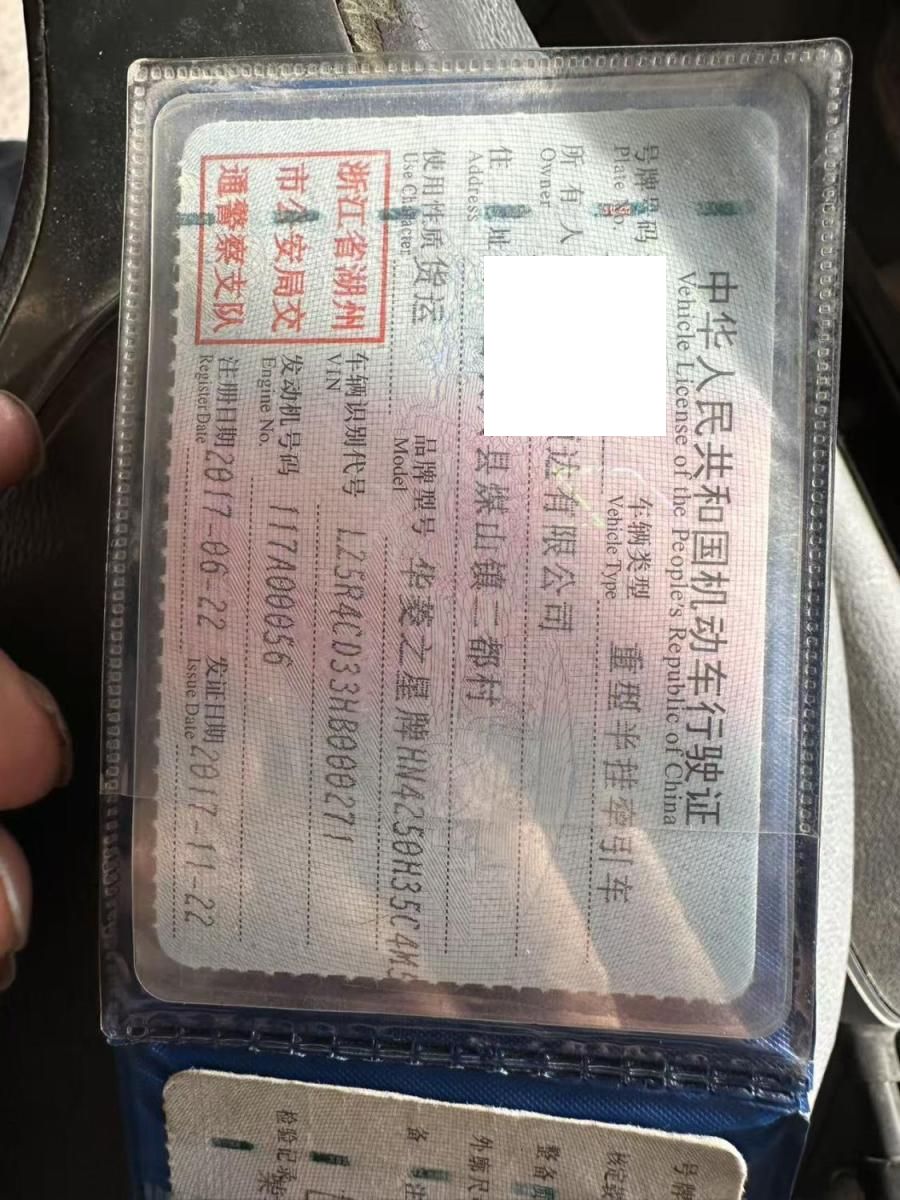 中华人民共和国机动车行驶证
Vehicle License of the People's Republic of China
号牌号码
Plate No.
车辆类型 重型半挂牵引车
Vehicle Type
所有人
Owner
有限公司
住址
Address
县煤山镇二都村
使用性质 货运
Use Character
品牌型号 华菱之星牌HN4250H35C4M5
Model
浙江省湖州
市公安局交
通警察支队
车辆识别代号 LZ5R4CD33HB000271
VIN
发动机号码 117A00056
Engine No.
注册日期 2017-06-22 发证日期 2017-11-22
Register Date Issue Date
号牌
核定载
整备
外廓尺
备注
检验记录